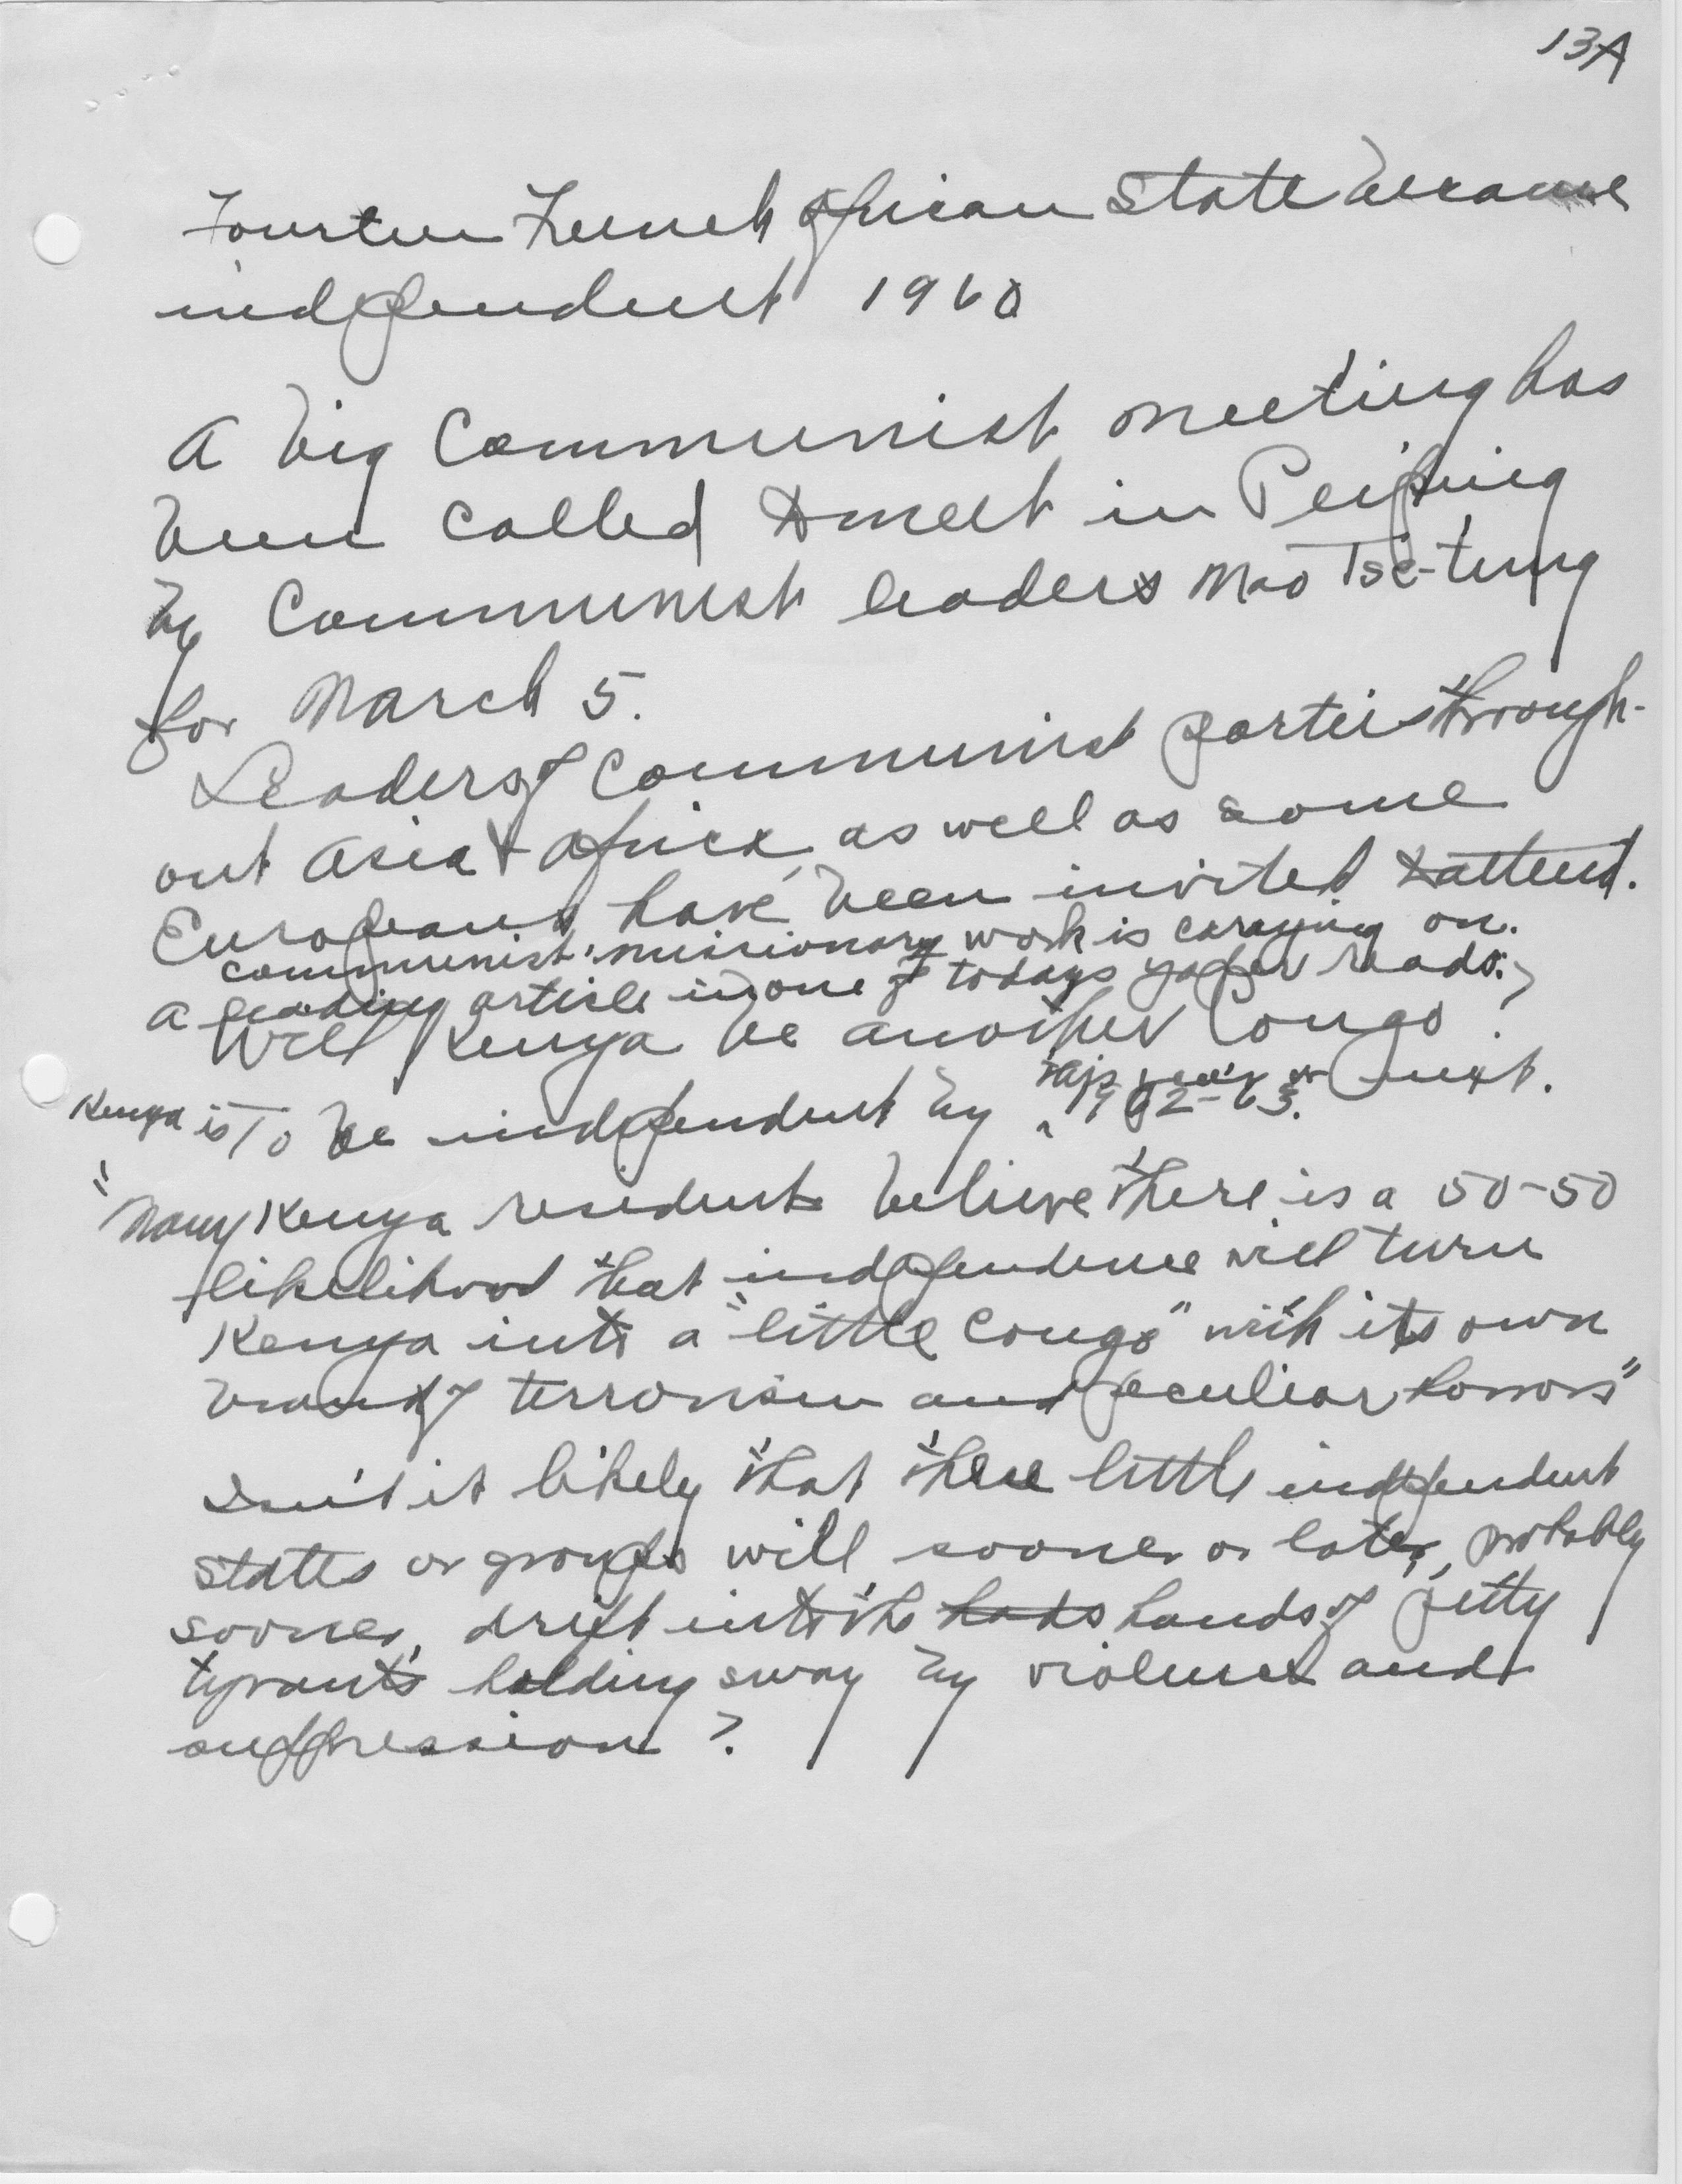 13A
Fourteen French African State became
independent 1960
A big Communist meeting has
been called to meet in Peiping
by Communist leaders Mao Tse-tung
for March 5.
Leaders of Communist parties through-
out Asia & Africa, as well as some
Europeans have been invited to attend.
Communist missionary work is carrying on.
A leading article in one of todays paper reads:
Will Kenya be another Congo?
this year or next.
Kenya is To be independent by 1962-63.
"Many Kenya residents believe there is a 50-50
likelihood that independence will turn
Kenya into a "little Congo" with its own
brand of terrorism and peculiar horrors"
Isn't it likely that these little independent
states or groups will sooner or later, probably
sooner, drift into the hads hands of petty
tyrants holding sway by violence and
suppression?